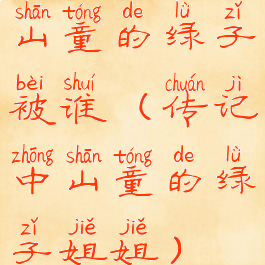 shān tóng de lù zǐ
山童的绿子
bèi shuí chuán jì
被谁(传记
zhōng shān tóng de lù
中山童的绿
zǐ jiě jiě
子姐姐)